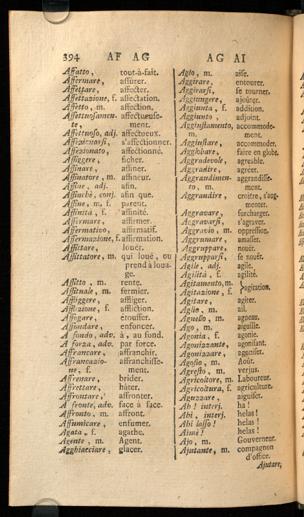 394 AF AG
Affatto, tout-à-fait.
Affermare, assûrer.
Affettare, affecter.
Affettazione, f. affectation.
Affetto, m. affection.
Affettuosamen- affectueuse-
te ment.
Affettuoso, adj. affectueux.
s'affectionner.
Affezionato, affectionné.
Affiggere, ficher.
Affinare, affiner.
Affinatore, m. affineur.
Affine, adj. afin.
Affinchè, conj. afin que.
Affine, m. f. parent.
Affinità, f. affinité.
Affirmare, affirmer.
Affermativo, affirmatif.
Affermazione, f. affirmation.
Affittare, louër.
Affittatore, m. qui louë, ou
prend à loua-
ge.
Affitto, m. rente.
Affittuale, m. fermier.
Affliggere, affliger.
Afflizione, f. affliction.
Affogare, étouffer.
Affondare, enfoncer.
A fondo, adv. à, au fond.
A forza, adv. par force.
Affrancare, affranchir.
Affrancazio- affranchisse-
ne, f. ment.
Affrenare, brider.
Affrettare, hâter.
Affrontare, affronter.
A fronte, adv. face à face.
Affronto, m. affront.
Affumicare, enfumer.
Agata, f. agathe.
Agente, m. Agent.
Agghiacciare, glacer.
AG AI
Agio, m. aise.
Aggirare, entourer.
Aggirarsi, se tourner.
Aggiungere, ajoûter.
Aggiunta, f. addition.
Aggiunto, adjoint.
Aggiustamento, accommode-
m. ment.
Aggiustare, accommoder.
Aggobbare, faire en globe.
Aggradevole, agreable.
Aggradire, agréer.
Aggrandimen- aggrandisse-
to, m. ment.
Aggrandire, croitre, s'aug-
menter.
Aggravare, surcharger.
Aggravarsi, s'agraver.
Aggravio, m. oppression.
Aggrumare, amasser.
Aggruppare, nouër.
Aggrupparsi, se nouër.
Agile, adj. agile.
Agilità, f. agilité.
Agitamento, m.
Agitazione, f. agitation.
Agitare, agiter.
Aglio, m. ail.
Agnello, m. agneau.
Ago, m. aiguille.
Agonia, f. agonie.
Agonizzante, agonisant.
Agonizzare, agoniser.
Agosto, m. Août.
Agresto, m. verjus.
Agricoltore, m. Laboureur.
Agricoltura, f. agriculture.
Aguzzare, aiguiser.
Ah! interj. ha!
Ahi, interj. helas!
Ahi lasso! helas!
Aimè! helas!
Ajo, m. Gouverneur.
Ajutante, m. compagnon
d'office.
Ajutare,